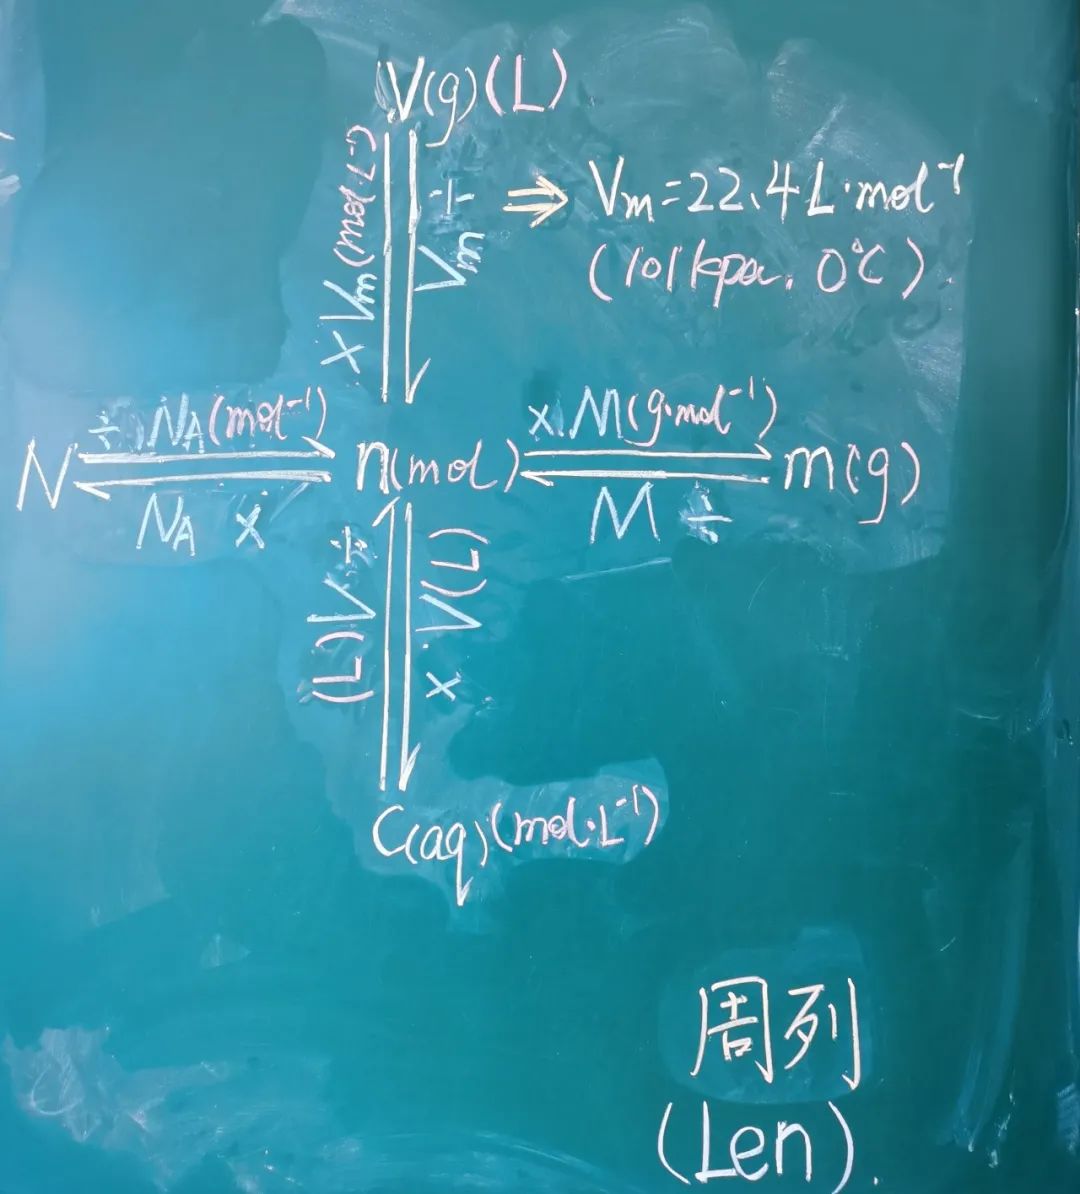 V(g)(L)
× Vm(mol·L⁻¹)
÷ Vm
⇒ Vm=22.4L·mol⁻¹
(101kpa. 0℃).
÷ NA(mol⁻¹)
×.M(g·mol⁻¹)
N
n(mol)
m(g)
NA ×
M ÷
(L)V÷
×·V(L)
C(aq)(mol·L⁻¹)
周列
(Len).